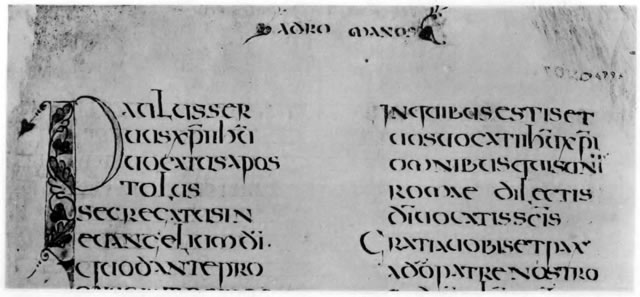 AD ROMANOS
PAULUS SER
UUS XP̄I IHŪ
UOCATUS APOS
TOLUS
SEGREGATUS IN
EUANGELIUM DĪ·
QUOD ANTE PRO
IN QUIBUS ESTIS ET
UOS UOCATI IHŪ XP̄I
OMNIBUS QUI SUNT
ROMAE DILECTIS
DĪ UOCATIS SC̄IS
GRATIA UOBIS ET PAX
A DŌ PATRE NOSTRO